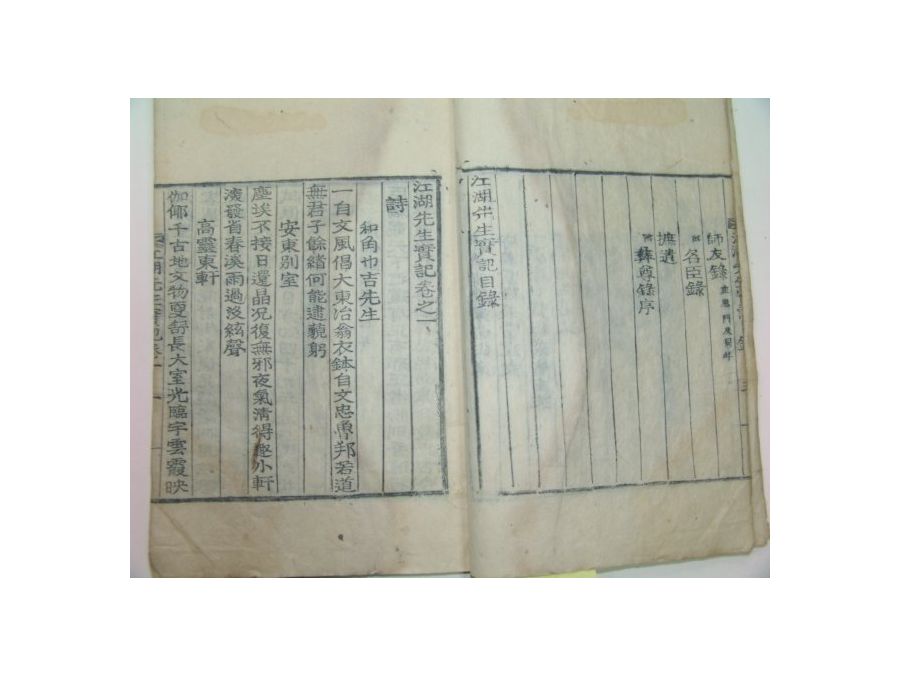 師友錄
附
名臣錄
摭遺
附
彝尊錄序
江湖先生實記目錄
江湖先生實記卷之一
詩
和冶隱吉先生
一自文風倡大東冶翁衣鉢自文忠魯邦若道
無君子餘緖何能逮藐躬
安東別室
塵埃不接日還晶况復無邪夜氣淸得趣小軒
濃發省春溪雨過沒絃聲
高靈東軒
伽倻千古地文物夏舒長大室光臨宇雲霞映